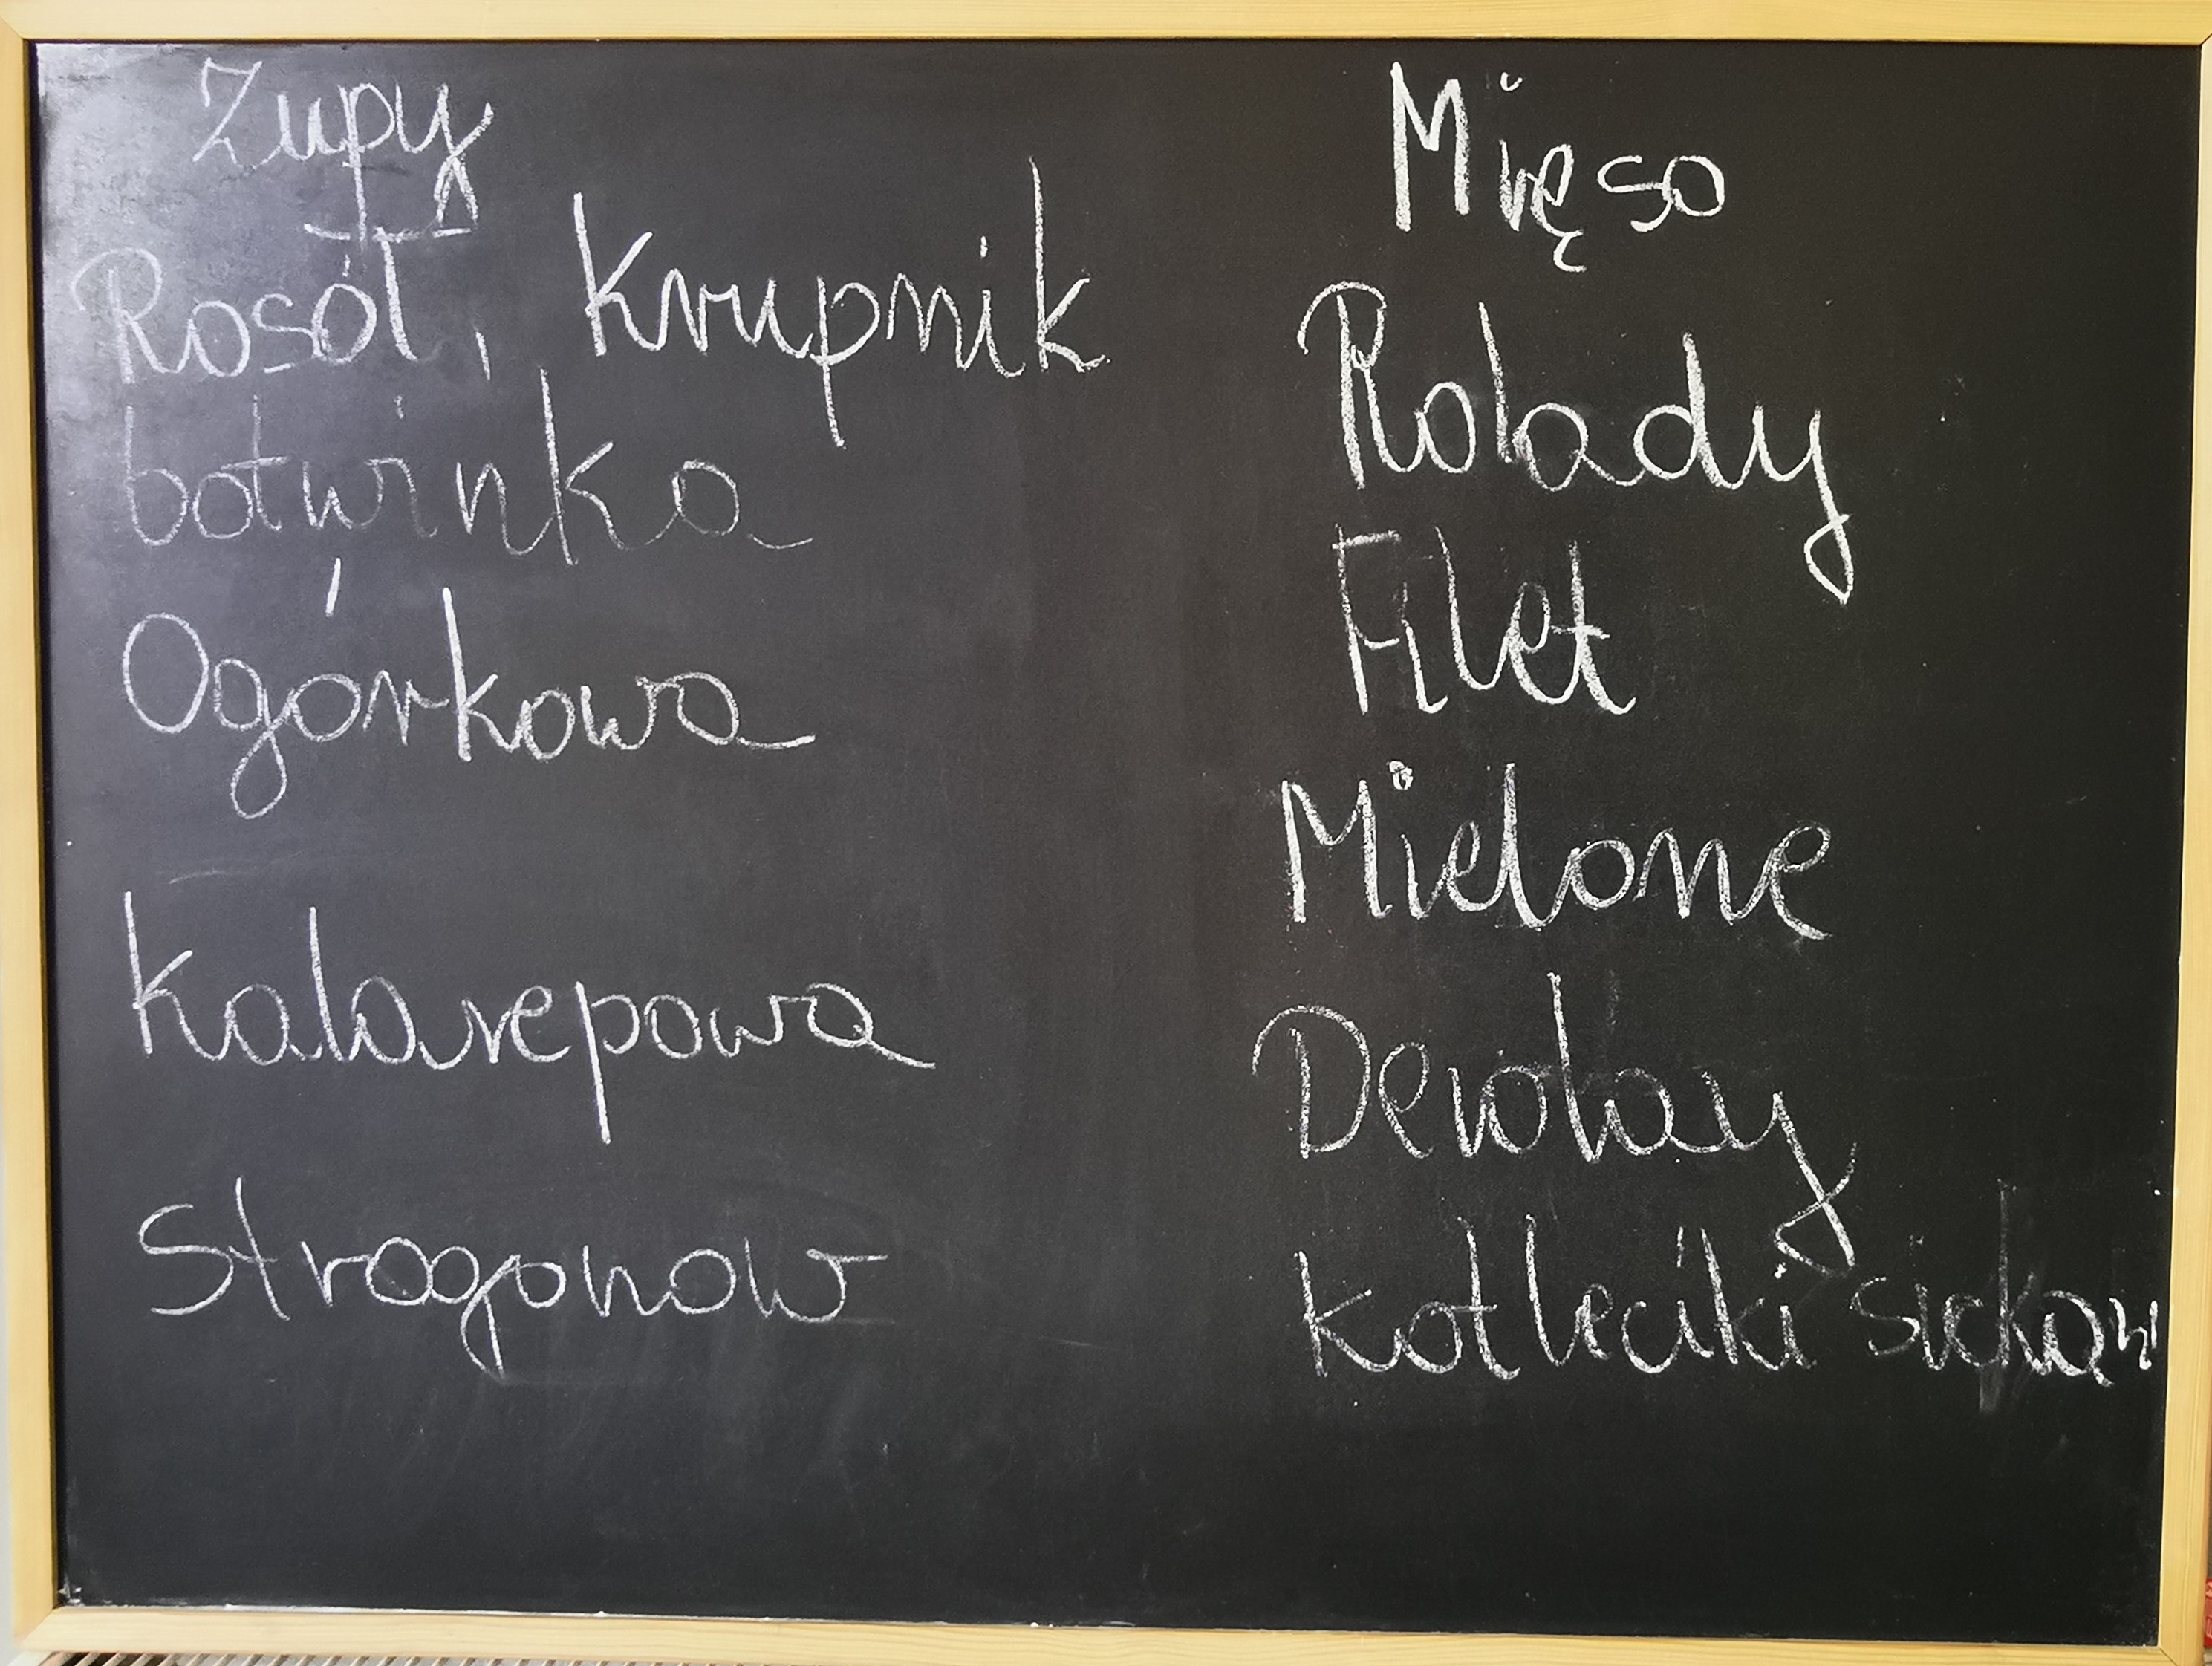 Zupy
Rosół, Krupnik
botwinka
Ogórkowa
Kalarepowa
Strogonow
Mięso
Rolady
Filet
Mielone
Devolay
Kotleciki